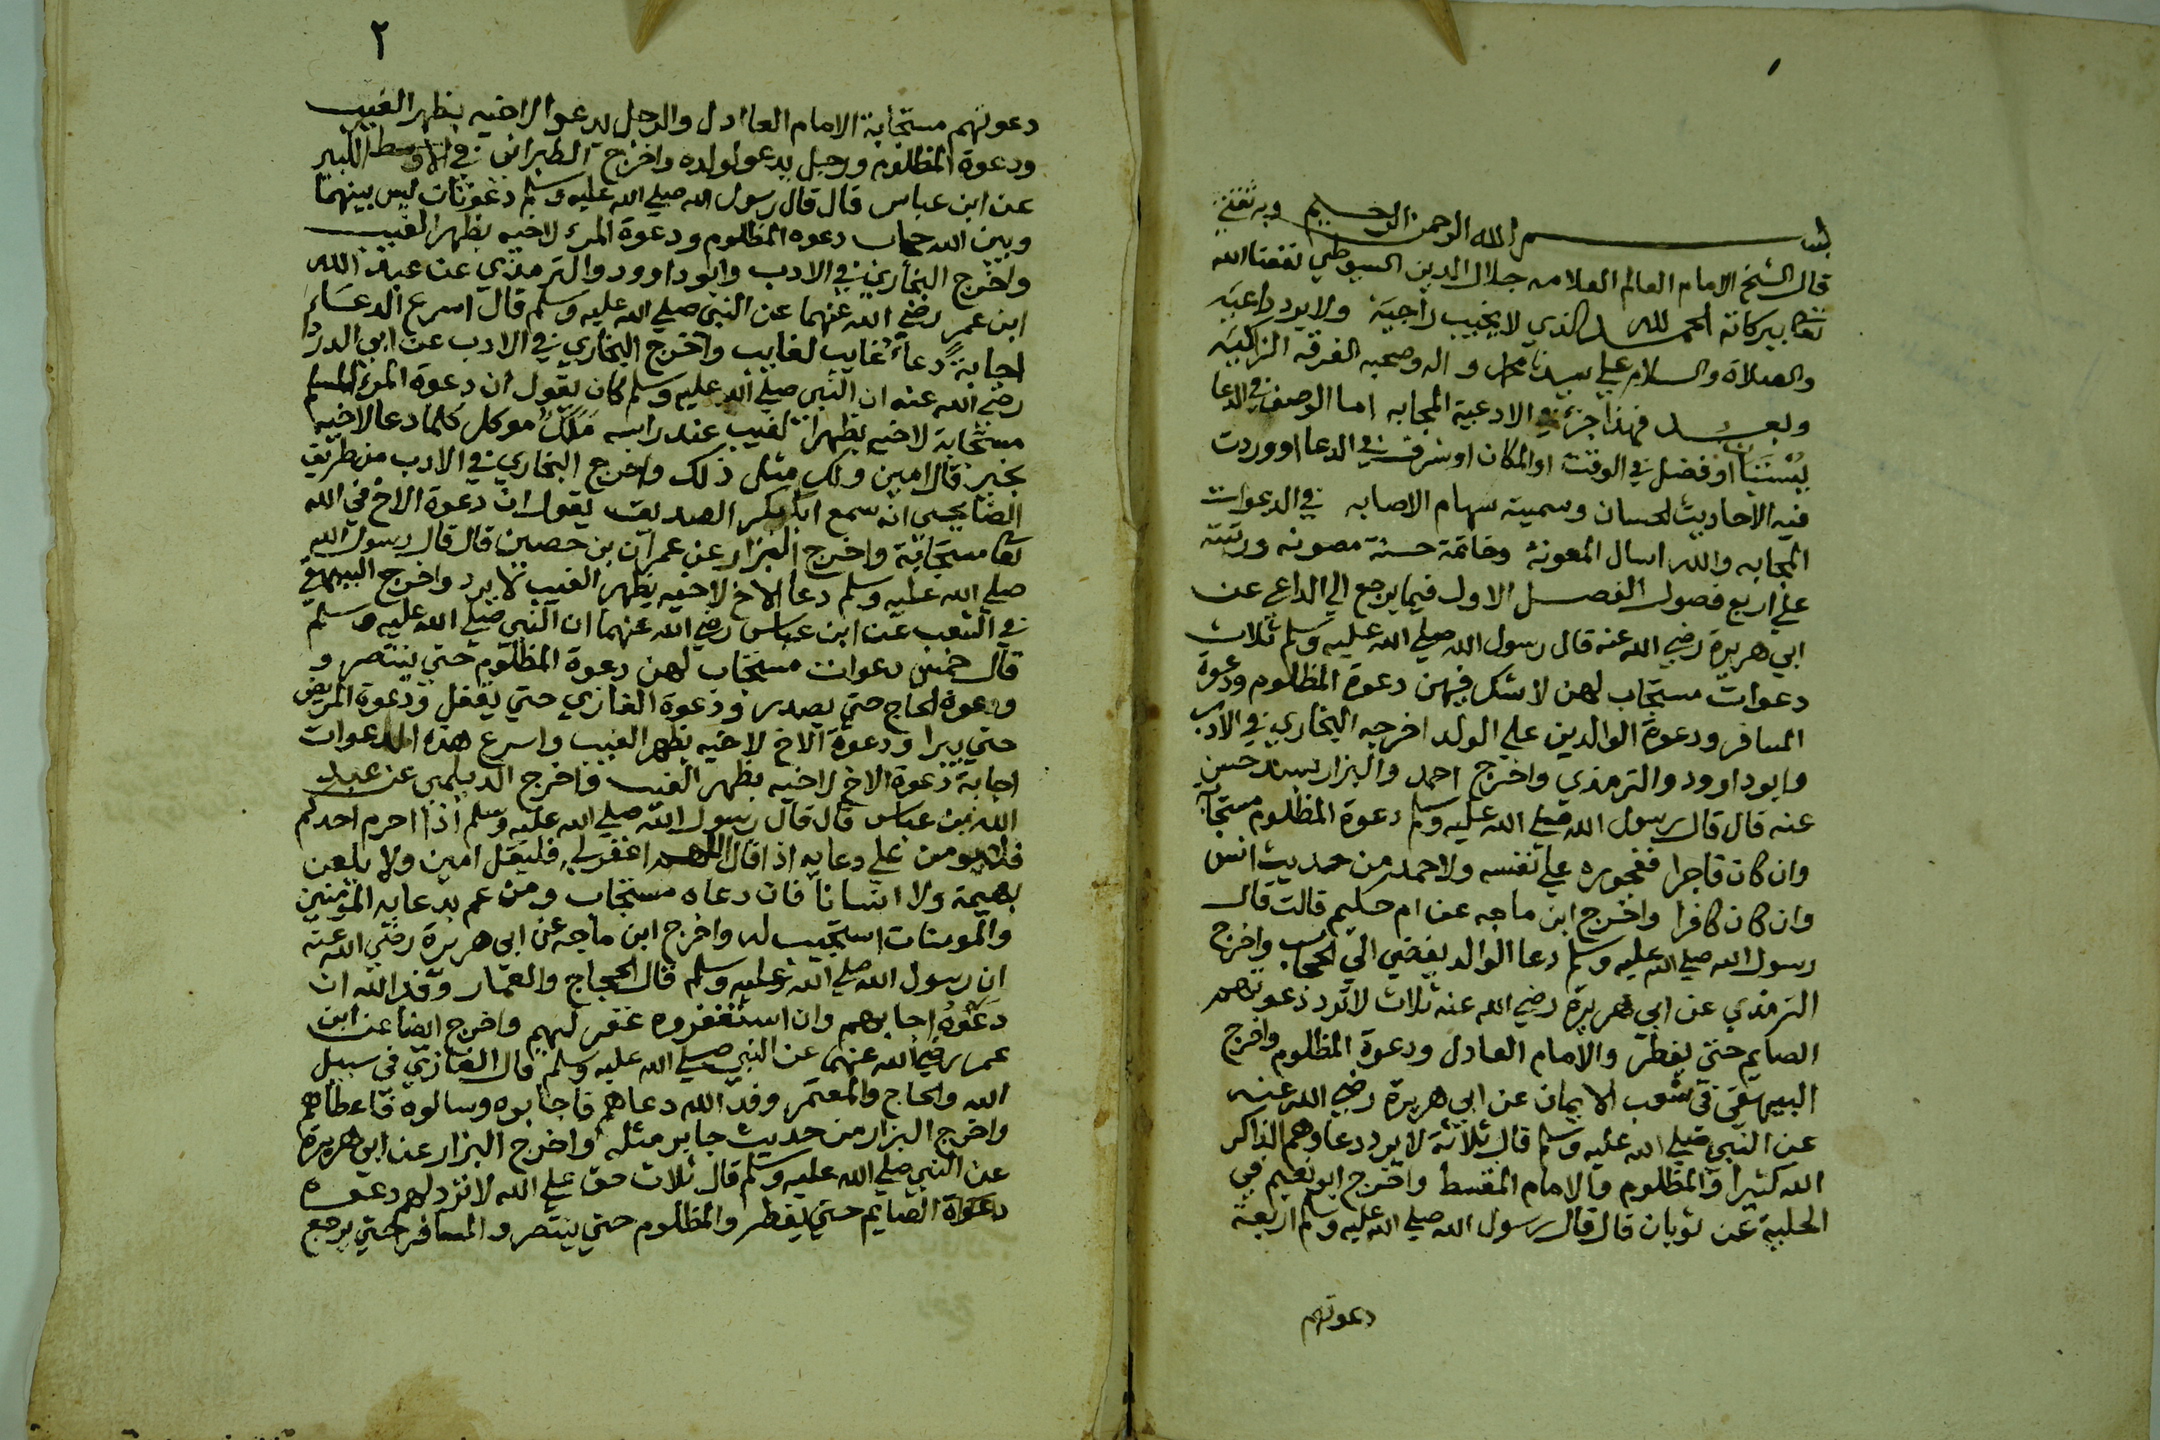 ١
بسم الله الرحمن الرحيم وبه ثقتي
قال الشيخ الامام العالم العلامه جلال الدين السيوطي نفعنا الله
تعالي ببركاته الحمد لله الذي لا يخيب راجيه ولا يرد داعيه
والصلاة والسلام علي سيدنا محمد واله وصحبه الفرقه الزاكيه
وبعد فهذا جزء في الادعية المجابه اما الوصف في الدعا
او فضل في الوقت او المكان او شرف في الدعا او وردت
فيه الاحاديث الحسان وسميته سهام الاصابه في الدعوات
المجابه والله اسال المعونة وخاتمة حسنة مصونه ورتبته
علي اربع فصول الفصل الاول فيما يرجع الي الداعي عن
ابي هريرة رضي الله عنه قال رسول الله صلي الله عليه وسلم ثلاث
دعوات مستجاب لهن لا شك فيهن دعوة المظلوم ودعوة
المسافر ودعوة الوالدين علي الولد اخرجه البخاري في الأدب
وابو داوود والترمذي واخرج احمد والبزار بسند حسن
عنه قال قال رسول الله صلي الله عليه وسلم دعوة المظلوم مستجابة
وان كان فاجرا ففجوره علي نفسه ولاحمد من حديث انس
وان كان كافرا واخرج ابن ماجه عن ام حكيم قالت قال
رسول الله صلي الله عليه وسلم دعا الوالد يفضي الي الحجاب واخرج
الترمذي عن ابي هريرة رضي الله عنه ثلاث لا ترد دعوتهم
الصايم حتي يفطر والامام العادل ودعوة المظلوم واخرج
البيهقي في شعب الايمان عن ابي هريرة رضي الله عنه
عن النبي صلي الله عليه وسلم قال ثلاثة لا يرد دعاوهم الذاكر
الله كثيرا والمظلوم والامام المقسط واخرج ابو نعيم في
الحلية عن ثوبان قال قال رسول الله صلي الله عليه وسلم اربعة
دعوتهم
٢
دعوتهم مستجابة الامام العادل والرجل يدعو لاخيه بظهر الغيب
ودعوة المظلوم ورجل يدعو لولده واخرج الطبراني في الاوسط الكبير
عن ابن عباس قال قال رسول الله صلي الله عليه وسلم دعوتان ليس بينهما
وبين الله حجاب دعوه المظلوم ودعوة المرء لاخيه بظهر الغيب
واخرج البخاري في الادب وابو داوود والترمذي عن عبد الله
ابن عمر رضي الله عنهما عن النبي صلي الله عليه وسلم قال اسرع الدعاء
اجابة دعاء غايب لغايب واخرج البخاري في الادب عن ابي الدردا
رضي الله عنه ان النبي صلي الله عليه وسلم كان يقول ان دعوة المرء المسلم
مستجابة لاخيه بظهر الغيب عند راسه ملك موكل كلما دعا لاخيه
بخير قال امين ولك مثل ذلك واخرج البخاري في الادب من طريق
الصنابحي انه سمع ابا بكر الصديق يقول ان دعوة الاخ في الله
تعا مستجابة واخرج البزار عن عمران بن حصين قال قال رسول الله
صلي الله عليه وسلم دعا الاخ لاخيه بظهر الغيب لا يرد واخرج البيهقي
في الشعب عن ابن عباس رضي الله عنهما ان النبي صلي الله عليه وسلم
قال خمس دعوات مستجاب لهن دعوة المظلوم حتي ينتصر و
ودعوة الحاج حتي يصدر ودعوة الغازي حتي يقفل ودعوة المريض
حتي يبرا ودعوة الاخ لاخيه بظهر الغيب واسرع هذه الدعوات
اجابة دعوة الاخ لاخيه بظهر الغيب واخرج الديلمي عن عبد
الله بن عباس قال قال رسول الله صلي الله عليه وسلم اذا احرم احدكم
فليومن علي دعايه اذا قال اللهم اغفر لي فليقل امين ولا يلعن
بهيمة ولا انسانا فان دعاه مستجاب ومن عم بدعايه المومنين
والمومنات استجيب له واخرج ابن ماجه عن ابي هريرة رضي الله عنه
ان رسول الله صلي الله عليه وسلم قال الحجاج والعمار وفد الله ان
دعوه اجابهم وان استغفروه غفر لهم واخرج ايضا عن ابن
عمر رضي الله عنهما عن النبي صلي الله عليه وسلم قال الغازي في سبيل
الله والحاج والمعتمر وفد الله دعاهم فاجابوه وسالوه فاعطاهم
واخرج البزار من حديث جابر مثله واخرج البزار عن ابي هريرة
عن النبي صلي الله عليه وسلم قال ثلاث حق علي الله لا ترد لهم دعوه
دعوة الصايم حتي يفطر والمظلوم حتي ينتصر والمسافر حتي يرجع